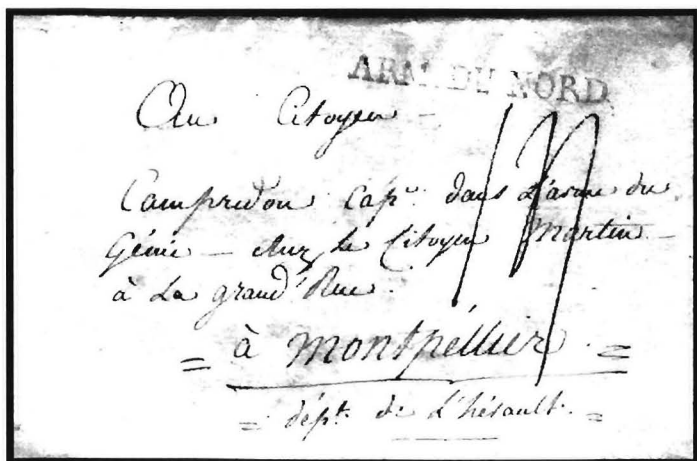 ARM. DU NORD
Au Citoyen
Campredon Capⁿ. dans L'arme du
Génie - chez le Citoyen Martin -
à La grand' Rue.
= à Montpéllier. =
= dépt. de L'hérault. =